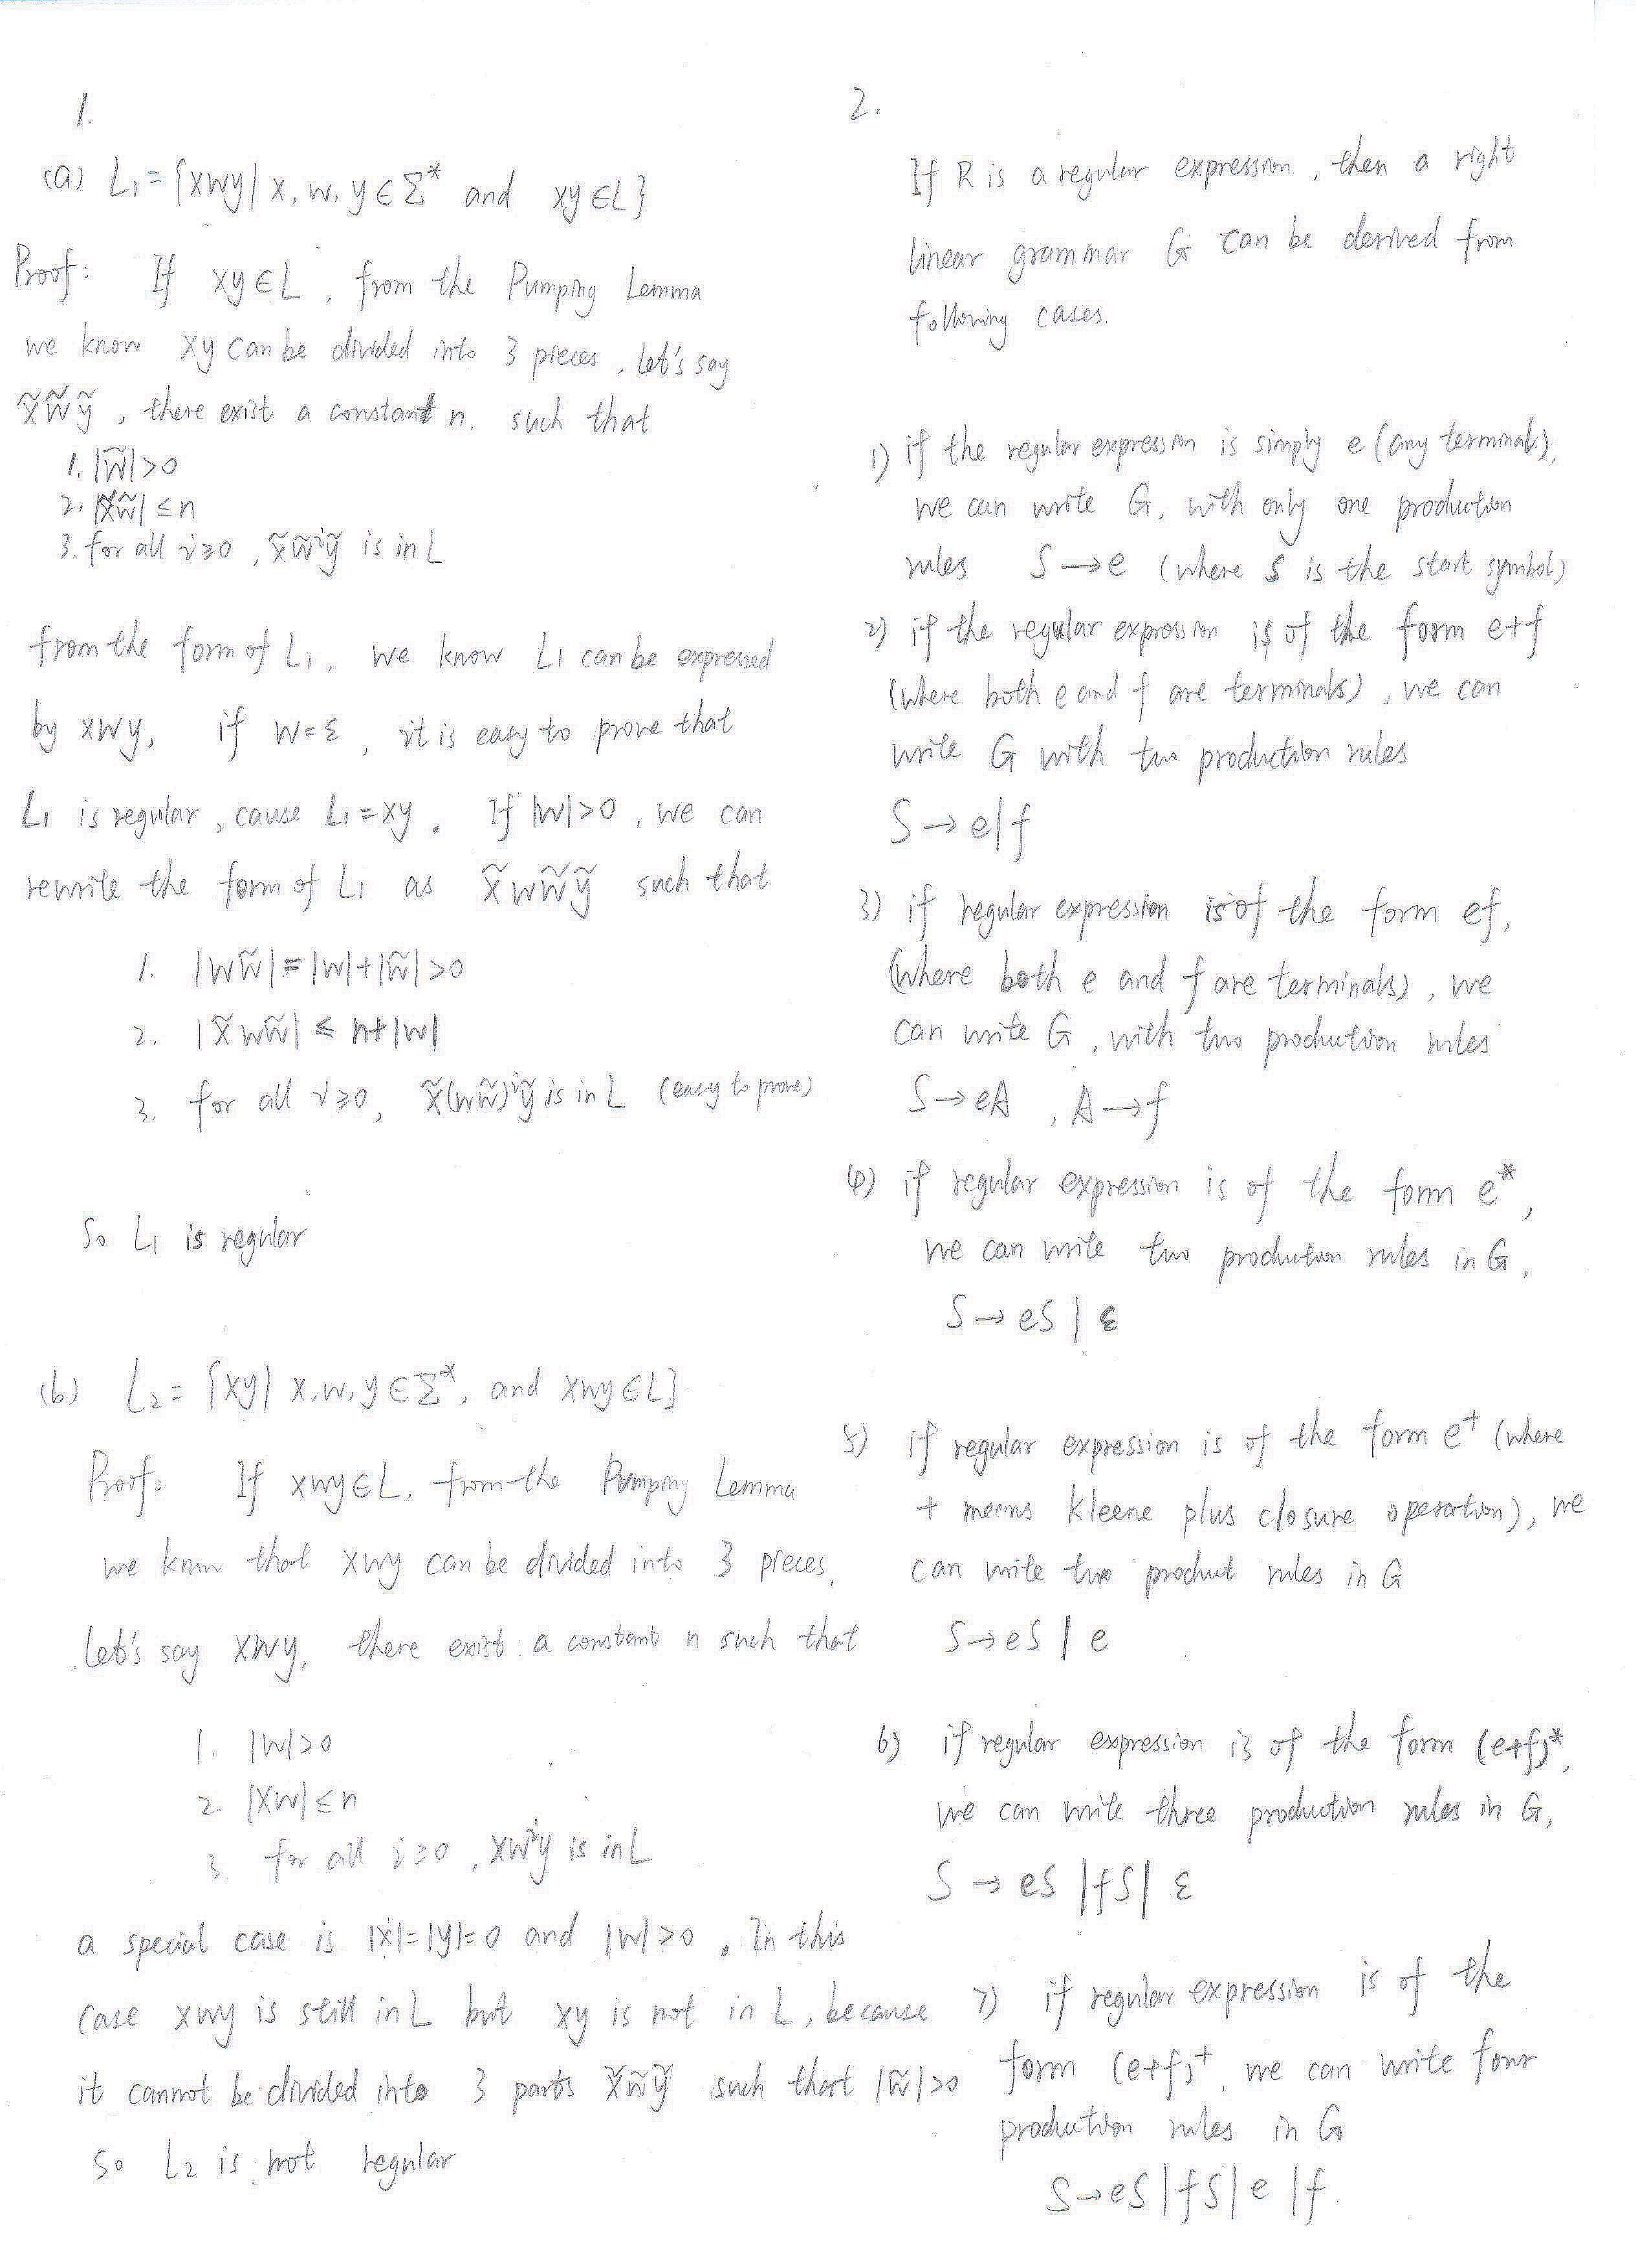 1.
(a) L₁ = {xwy | x, w, y ∈ Σ* and xy ∈ L}
Proof: If xy ∈ L, from the Pumping Lemma
we know xy can be divided into 3 pieces, let's say
x̃w̃ỹ, there exist a constant n. such that
1. |w̃| > 0
2. |x̃w̃| ≤ n
3. for all i ≥ 0, x̃w̃ⁱỹ is in L
from the form of L₁, we know L₁ can be expressed
by xwy, if w = ε, it is easy to prove that
L₁ is regular, cause L₁ = xy. If |w| > 0, we can
rewrite the form of L₁ as x̃ww̃ỹ such that
1. |ww̃| = |w| + |w̃| > 0
2. |x̃ww̃| ≤ n + |w|
3. for all i ≥ 0, x̃(ww̃)ⁱỹ is in L (easy to prove)
So L₁ is regular
(b) L₂ = {xy | x, w, y ∈ Σ*, and xwy ∈ L}
Proof: If xwy ∈ L, from the Pumping Lemma
we know that xwy can be divided into 3 pieces,
let's say xwy, there exist a constant n such that
1. |w| > 0
2. |xw| ≤ n
3. for all i ≥ 0, xwⁱy is in L
a special case is |x| = |y| = 0 and |w| > 0. In this
case xwy is still in L but xy is not in L, because
it cannot be divided into 3 parts x̃w̃ỹ such that |w̃| > 0
So L₂ is not regular
2.
If R is a regular expression, then a right
linear grammar G can be derived from
following cases.
1) if the regular expression is simply e (any terminals),
we can write G, with only one production
rules S → e (where S is the start symbol)
2) if the regular expression is of the form e+f
(where both e and f are terminals), we can
write G with two production rules
S → e | f
3) if regular expression is of the form ef,
(where both e and f are terminals), we
can write G, with two production rules
S → eA , A → f
4) if regular expression is of the form e*,
we can write two production rules in G,
S → eS | ε
5) if regular expression is of the form e⁺ (where
+ means kleene plus closure operation), we
can write two product rules in G
S → eS | e
6) if regular expression is of the form (e+f)*,
we can write three production rules in G,
S → eS | fS | ε
7) if regular expression is of the
form (e+f)⁺, we can write four
production rules in G
S → eS | fS | e | f.